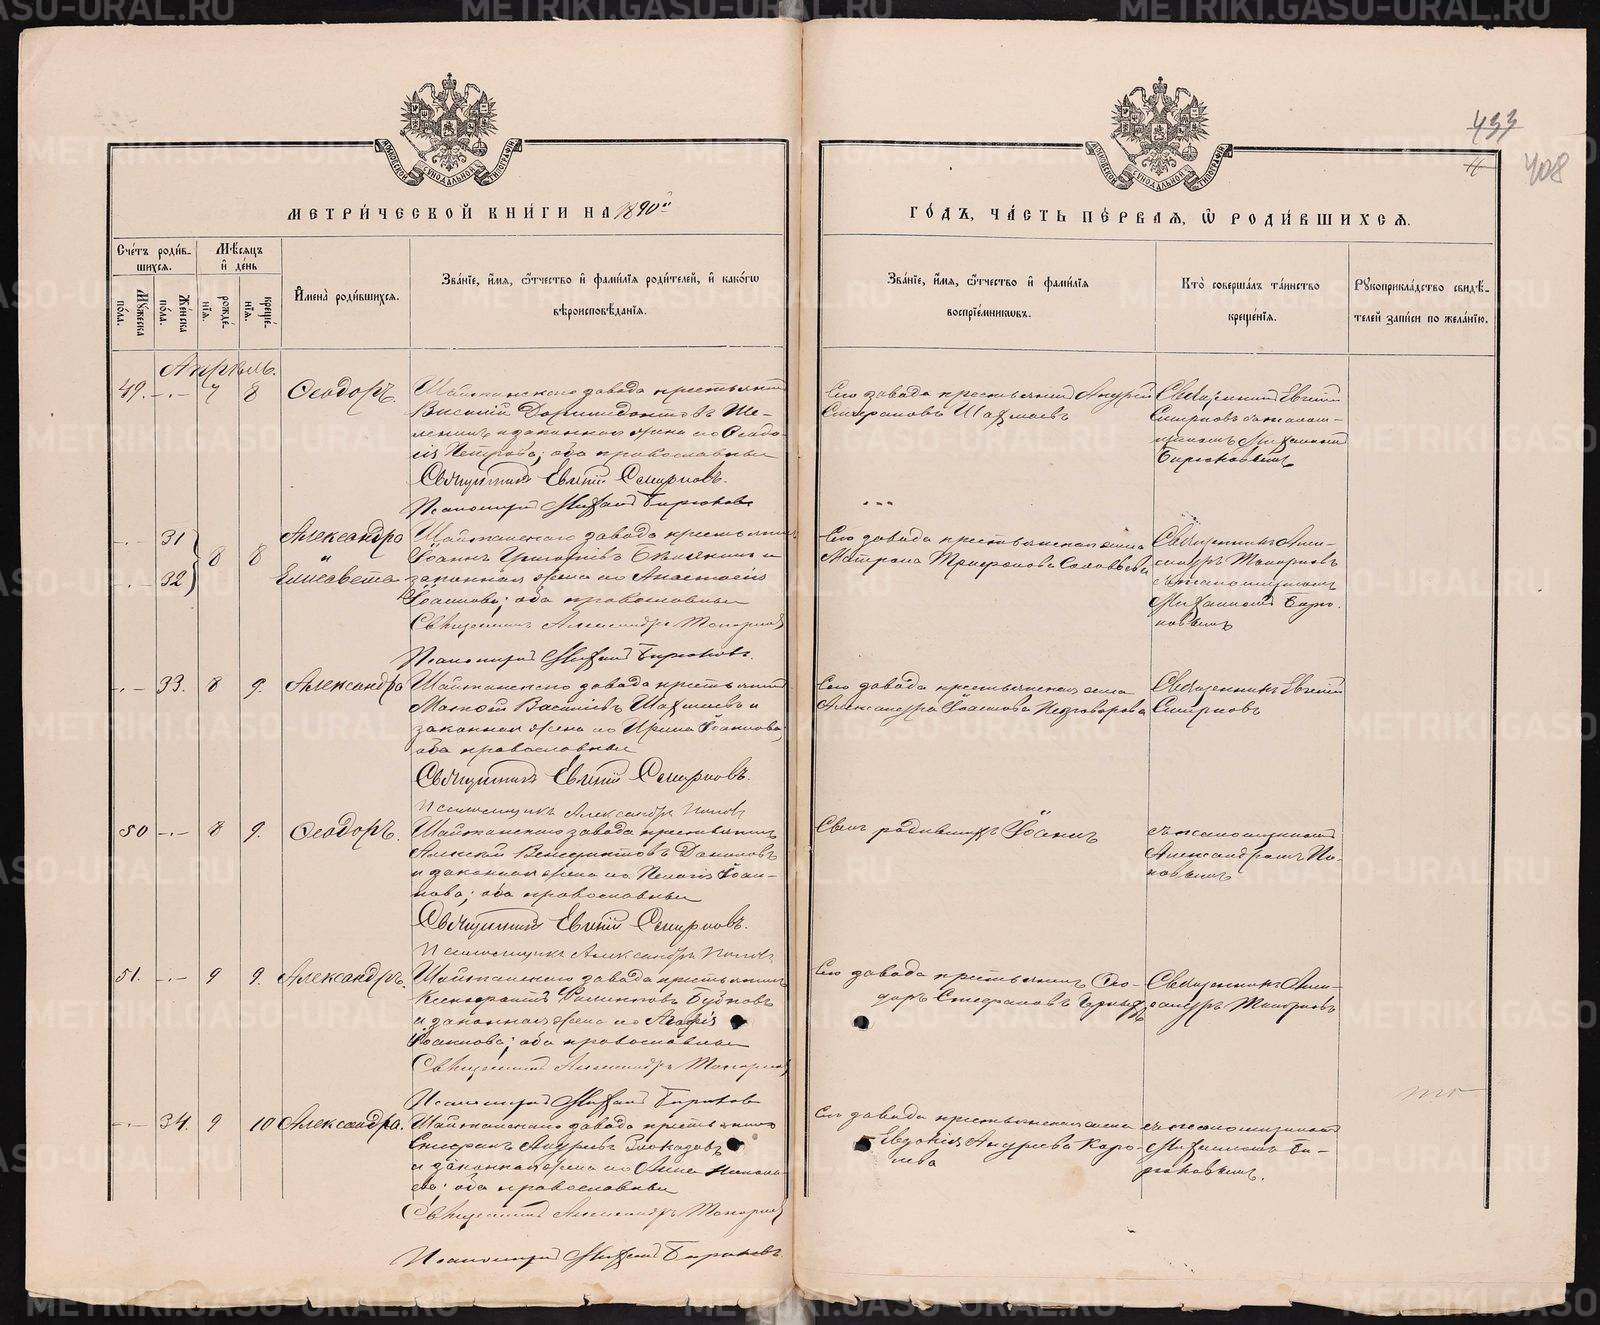 433
408
МЕТРИ́ЧЕСКОЙ КНИ́ГИ НА 1890й
ГО́ДЪ, ЧА́СТЬ ПЕ́РВАЯ, Ѡ РОДИ́ВШИХСЯ.
Сче́тъ роди́в-
шихся.
Мѣсяцъ
и де́нь
Мꙋжеска по́ла.
Же́нска по́ла.
рожде́-
нїѧ.
креще́-
нїѧ.
Имена̀ роди́вшихся.
Зва́нїе, и́мя, ѻ́тчество и фами́лїя роди́телей, и како́гѡ
вѣроисповѣ́данїя.
Зва́нїе, и́мя, ѻ́тчество и фами́лїя
воспрїе́мниковъ.
Кто̀ соверша́лъ та́инство
креще́нїя.
Рꙋкоприкла́дство свидѣ́-
телей за́писи по жела́нїю.
Апрѣль.
49. -.- 7 8 Ѳеодоръ.
Шайтанскаго завода крестьянинъ
Василій Дормидонтовъ Ше-
ленинъ и законная жена его Ѳеодо-
сія Петрова; оба православные
Священникъ Евгеній Смирновъ.
Псаломщикъ Михаилъ Бирюковъ
Его завода крестьянинъ Андрей
Стефановъ Шахмаевъ
Священникъ Евгеній
Смирновъ съ псалом-
щикомъ Михаиломъ
Бирюковымъ
-.- 31
-.- 32
8 8
Александра
и
Елисавета
Шайтанскаго завода крестьянинъ
Іоаннъ Григорьевъ Бѣлянинъ и
законная жена его Анастасія
Іоаннова; оба православные
Священникъ Александръ Топорковъ
Псаломщикъ Михаилъ Бирюковъ.
Его завода крестьянская жена
Матрона Трифонова Соловьева
Священникъ Алек-
сандръ Топорковъ
съ псаломщикомъ
Михаиломъ Бирю-
ковымъ
-.- 33. 8 9. Александра
Шайтанскаго завода крестьянинъ
Матѳей Васильевъ Шахмаевъ и
законная жена его Ирина Іоаннова,
оба православные
Священникъ Евгеній Смирновъ.
Псаломщикъ Александръ Поповъ
Его завода крестьянская жена
Александра Іоаннова
Священникъ Евгеній
Смирновъ
50 -.- 8 9. Ѳеодоръ.
Шайтанскаго завода крестьянинъ
Алексѣй Венедиктовъ Даниловъ
и законная жена его Пелагія Іоан-
нова; оба православные
Священникъ Евгеній Смирновъ.
Псаломщикъ Александръ Поповъ
Сынъ родившихъ Іоаннъ
съ псаломщикомъ
Александромъ По-
повымъ
51. -.- 9 9. Александръ.
Шайтанскаго завода крестьянинъ
Ксенофонтъ Филипповъ Бубновъ
и законная жена его Агафія
Іоаннова; оба православные
Священникъ Александръ Топорковъ
Псаломщикъ Михаилъ Бирюковъ
Его завода крестьянинъ Ѳео-
доръ Стефановъ
Священникъ Алек-
сандръ Топорковъ
-.- 34. 9 10 Александра.
Шайтанскаго завода крестьянинъ
Андреевъ Злоказовъ
и законная жена его Анна Никола-
ева; оба православные
Священникъ Александръ Топорковъ
Псаломщикъ Михаилъ Бирюковъ.
Его завода крестьянская жена
Евдокія Андреева Каро-
лева
съ псаломщикомъ
Михаиломъ Би-
рюковымъ.
METRIKI.GASO-URAL.RU